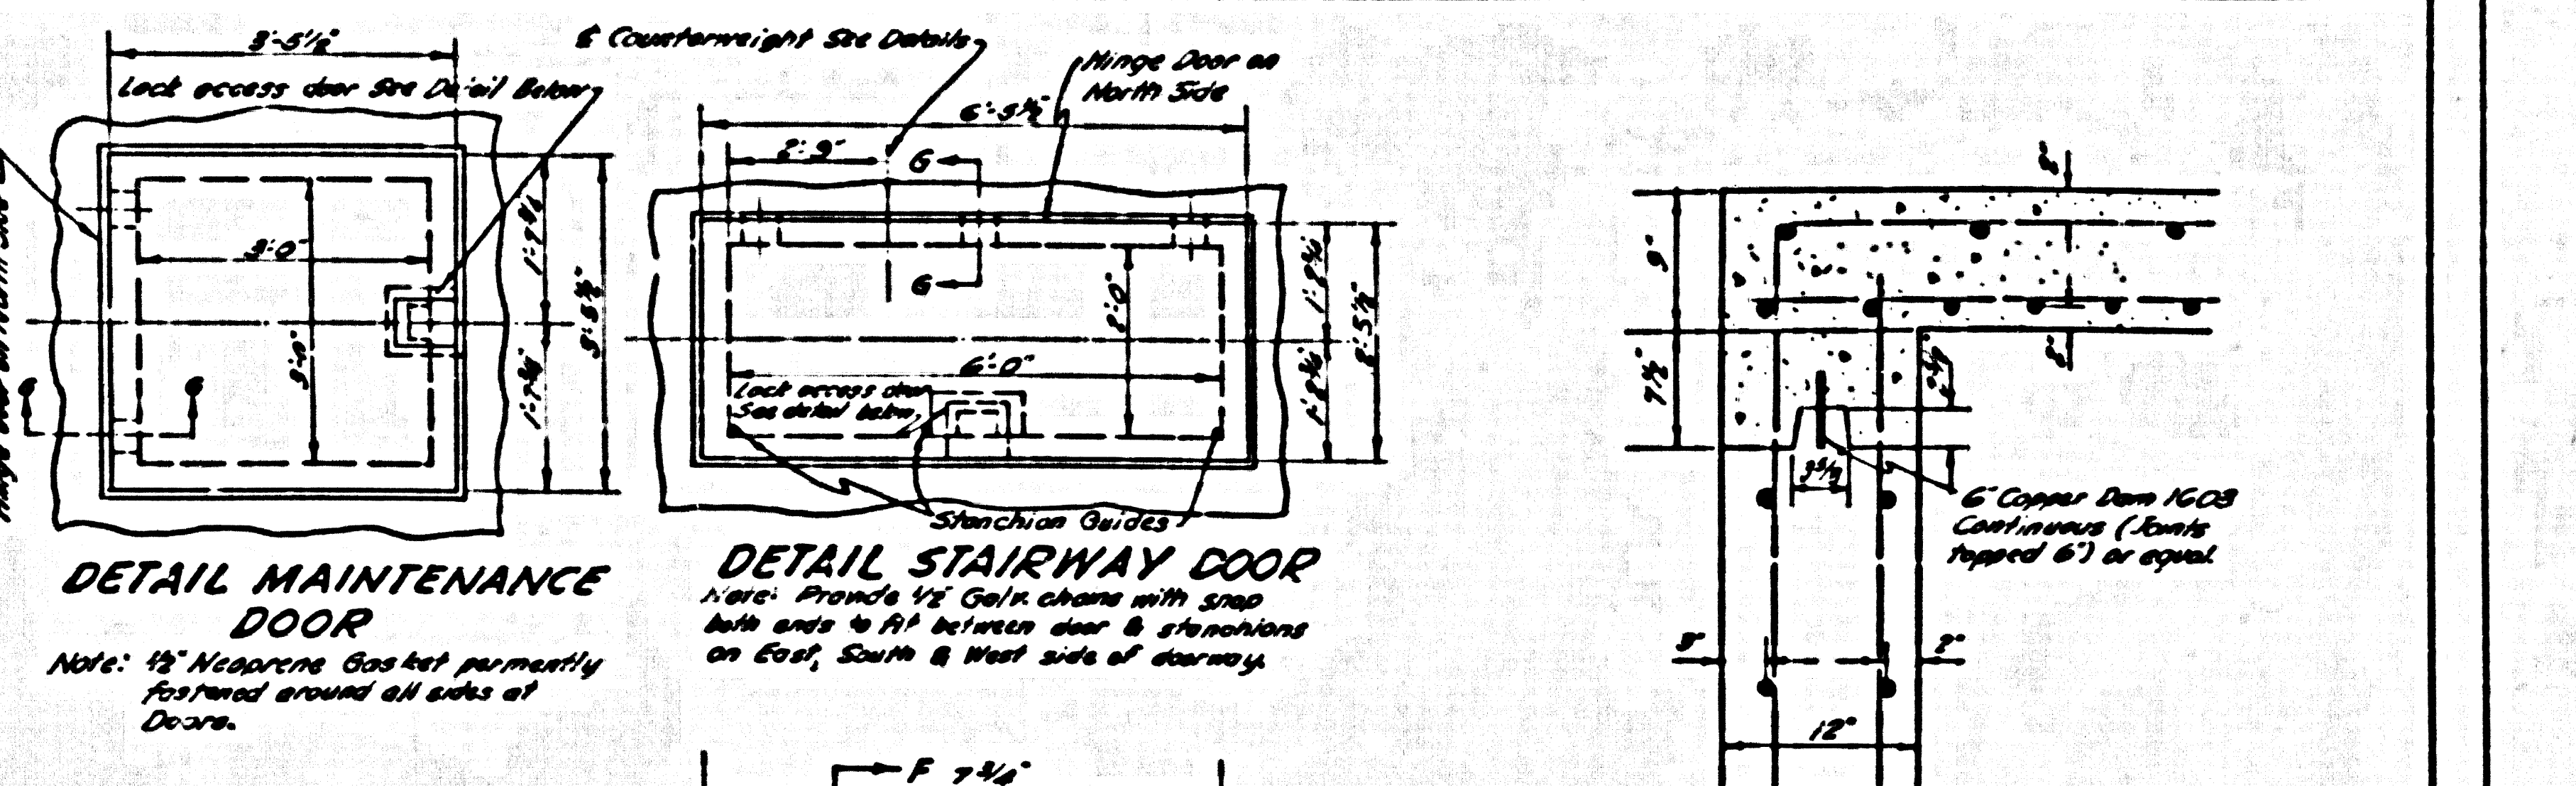 3'-5½"
Lock access door See Detail Below
3'-0"
3'-0"
1'-8¾"
3'-5½"
G G
DETAIL MAINTENANCE
DOOR
Note: ½" Neoprene Gasket permently
fastened around all sides at
Doors.
₵ Counterweight See Details
Hinge Door on
North Side
6'-5½"
2'-9"
G
G
2'-0"
1'-2¾"
1'-2¾"
2'-5½"
6'-0"
Lock access door
See detail below.
Stanchion Guides
DETAIL STAIRWAY DOOR
Note: Provide ½" Galv. chains with snap
both ends to fit between door & stanchions
on East, South & West side of doorway.
F 7¾"
2"
9"
7½"
2"
3⅝"
6" Copper Dam 1603
Continuous (Joints
lapped 6") or equal.
2"
12"